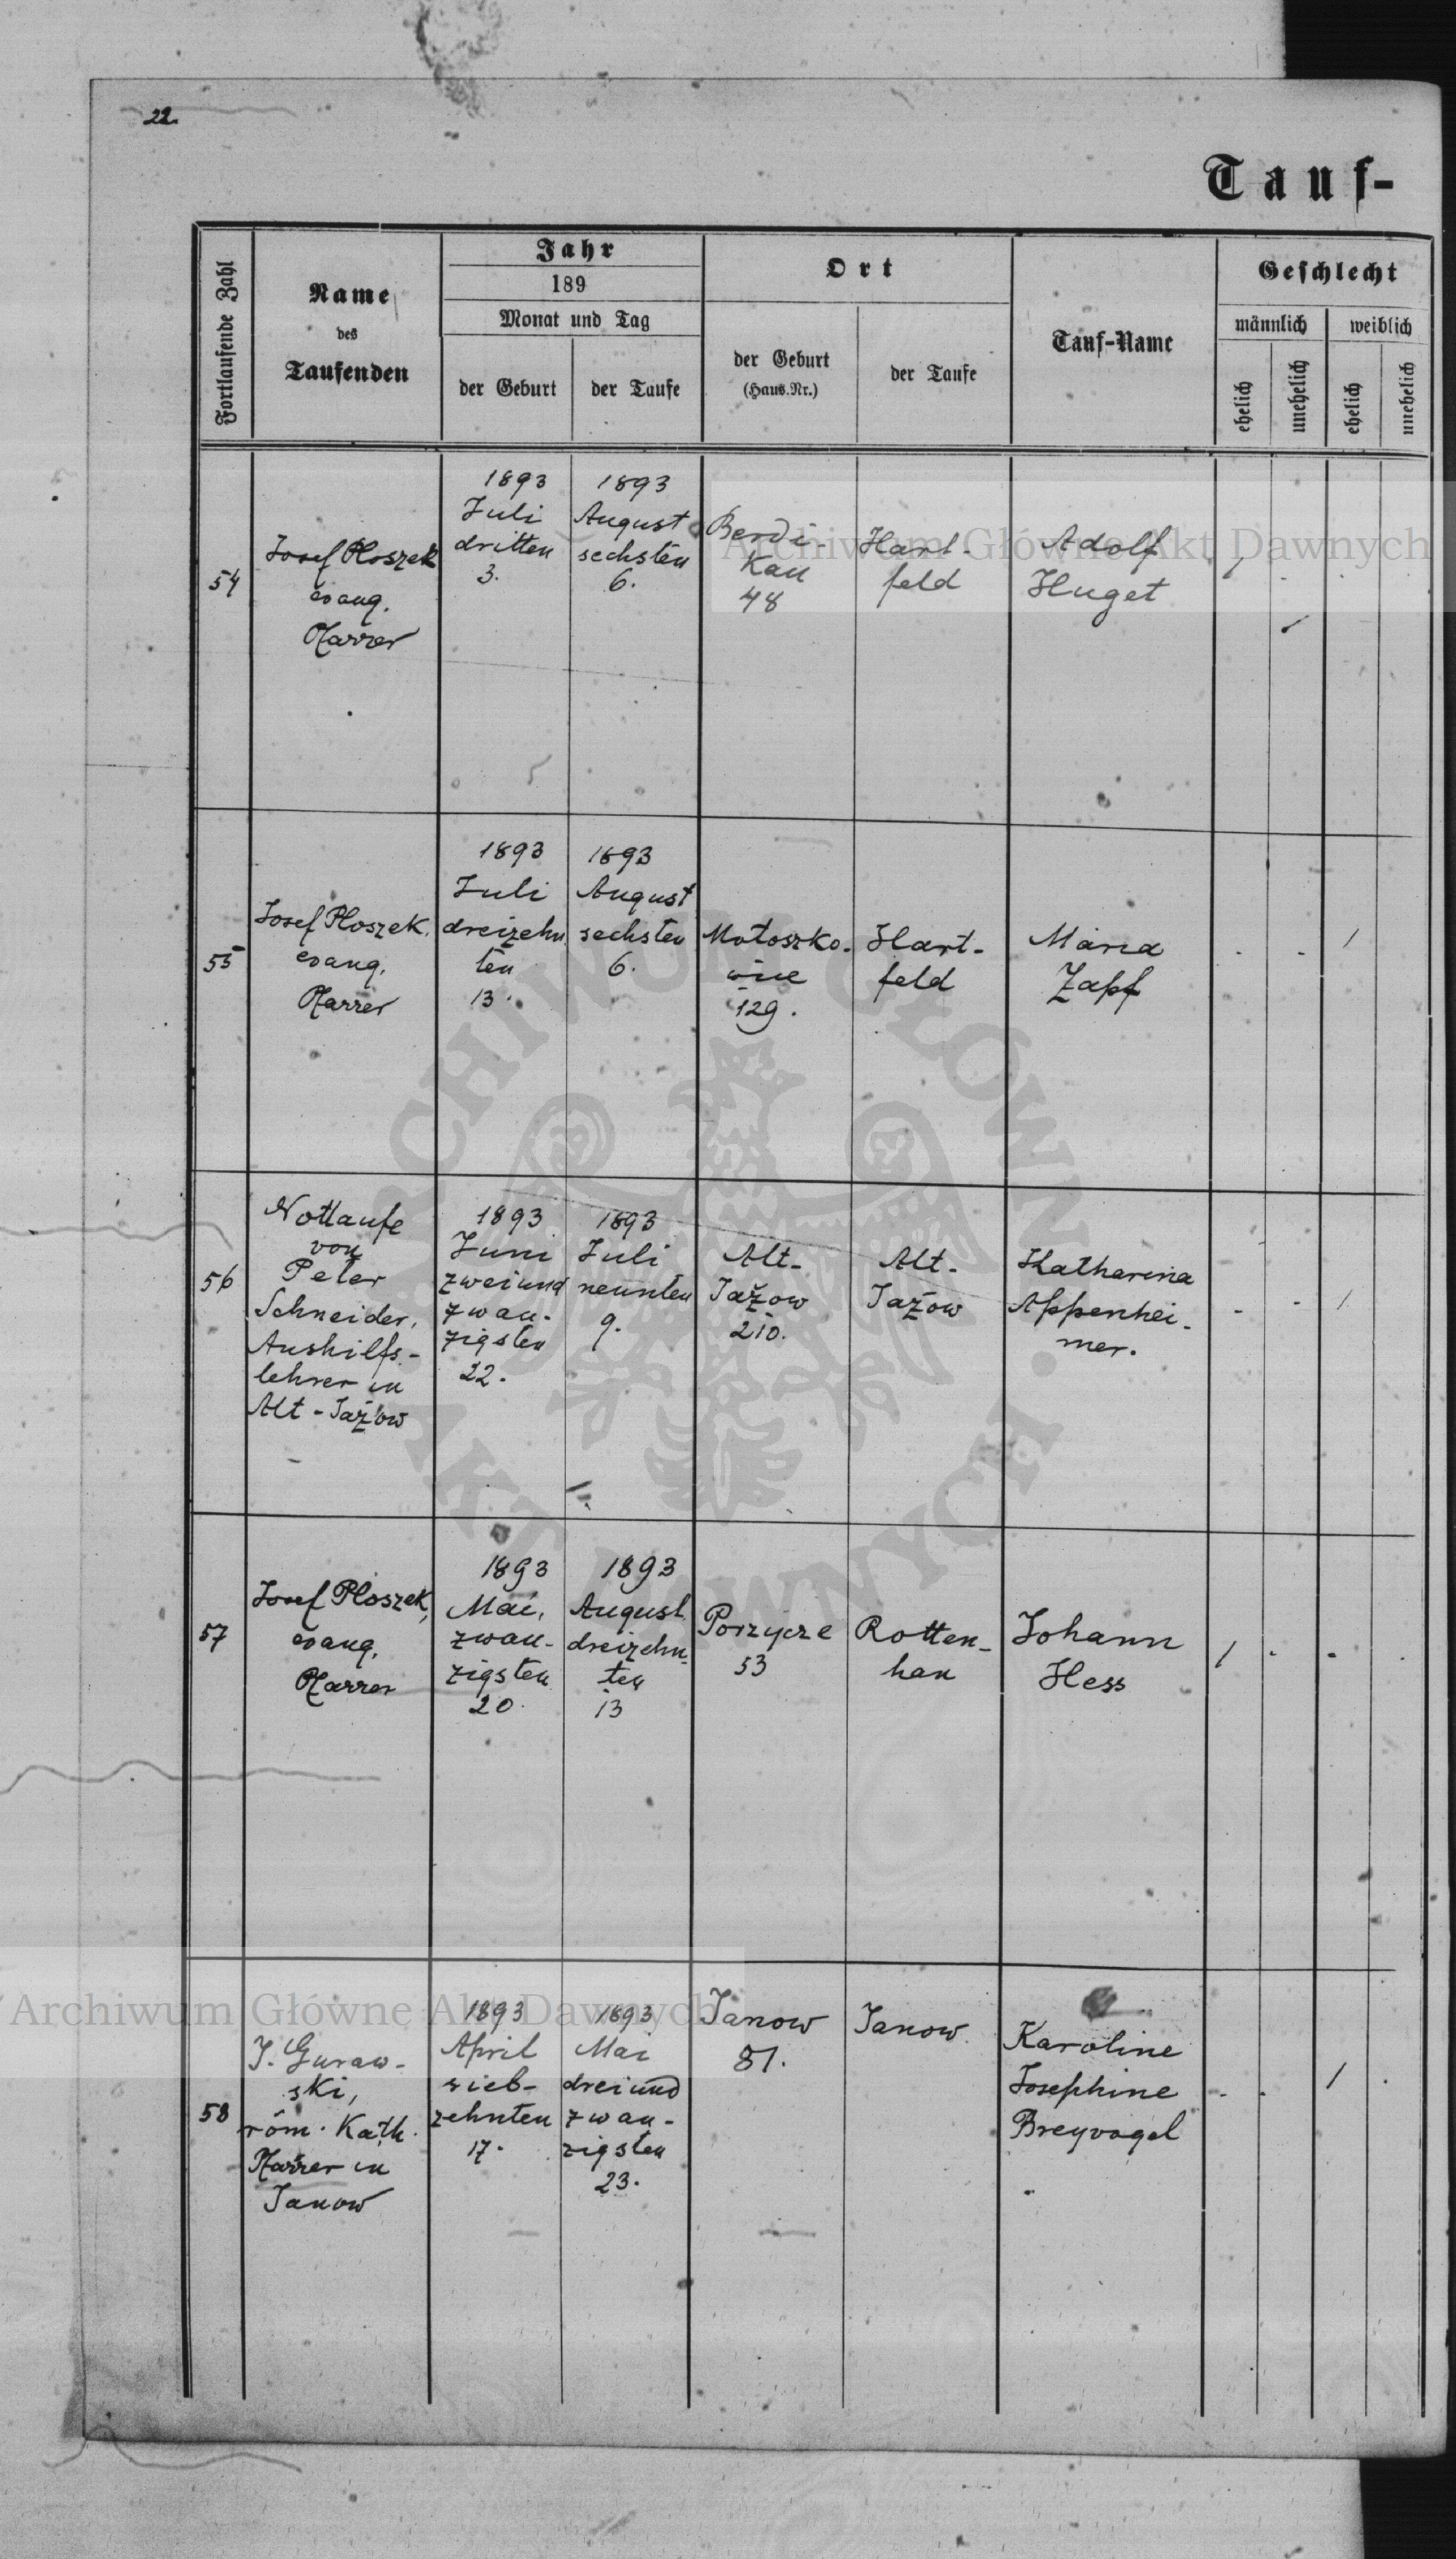 22.
Tauf-
Fortlaufende Zahl
Name
des
Taufenden
Jahr
189
Monat und Tag
der Geburt
der Taufe
Ort
der Geburt
(Haus.Nr.)
der Taufe
Tauf-Name
Geschlecht
männlich
weiblich
ehelich
unehelich
ehelich
unehelich
54
Josef Ploszek
evang.
Pfarrer
1893
Juli
dritten
3.
1893
August
sechsten
6.
Berdi-
kau
48
Hart-
feld
Adolf
Huget
1
55
Josef Ploszek.
evang.
Pfarrer
1893
Juli
dreizehn
ten
13.
1893
August
sechsten
6.
Motoszko-
wice
129.
Hart-
feld
Maria
Zapf
1
56
Nottaufe
von
Peter
Schneider,
Aushilfs-
lehrer in
Alt-Jażow
1893
Juni
zweiund
zwan-
zigsten
22.
1893
Juli
neunten
9.
Alt-
Jażow
210.
Alt-
Jażow
Katharina
Appenhei-
mer.
1
57
Josef Ploszek,
evang.
Pfarrer
1893
Mai,
zwan-
zigsten
20.
1893
August
dreizehn-
ten
13
Porzycze
53
Rotten-
han
Johann
Hess
1
58
J. Guraw-
ski,
röm. Kath.
Pfarrer in
Janow
1893
April
sieb-
zehnten
17.
1893
Mai
dreiund
zwan-
zigsten
23.
Janow
81.
Janow
Karoline
Josephine
Breyvogel
1
Archiwum Główne Akt Dawnych
Archiwum Główne Akt Dawnych
ARCHIWUM GŁÓWNE AKT DAWNYCH